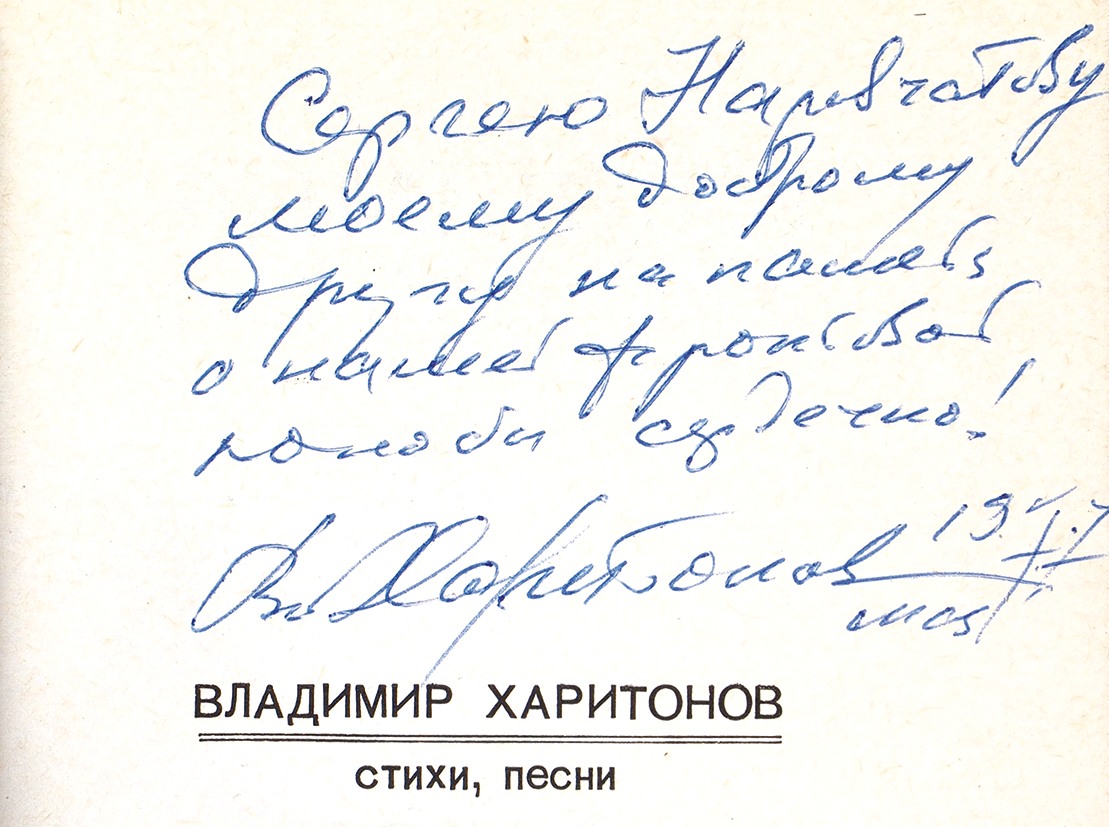 Сергею Наровчатову
моему доброму
другу на память
о нашей фронтовой
сердечно!
Вл. Харитонов
19
ВЛАДИМИР ХАРИТОНОВ
стихи, песни